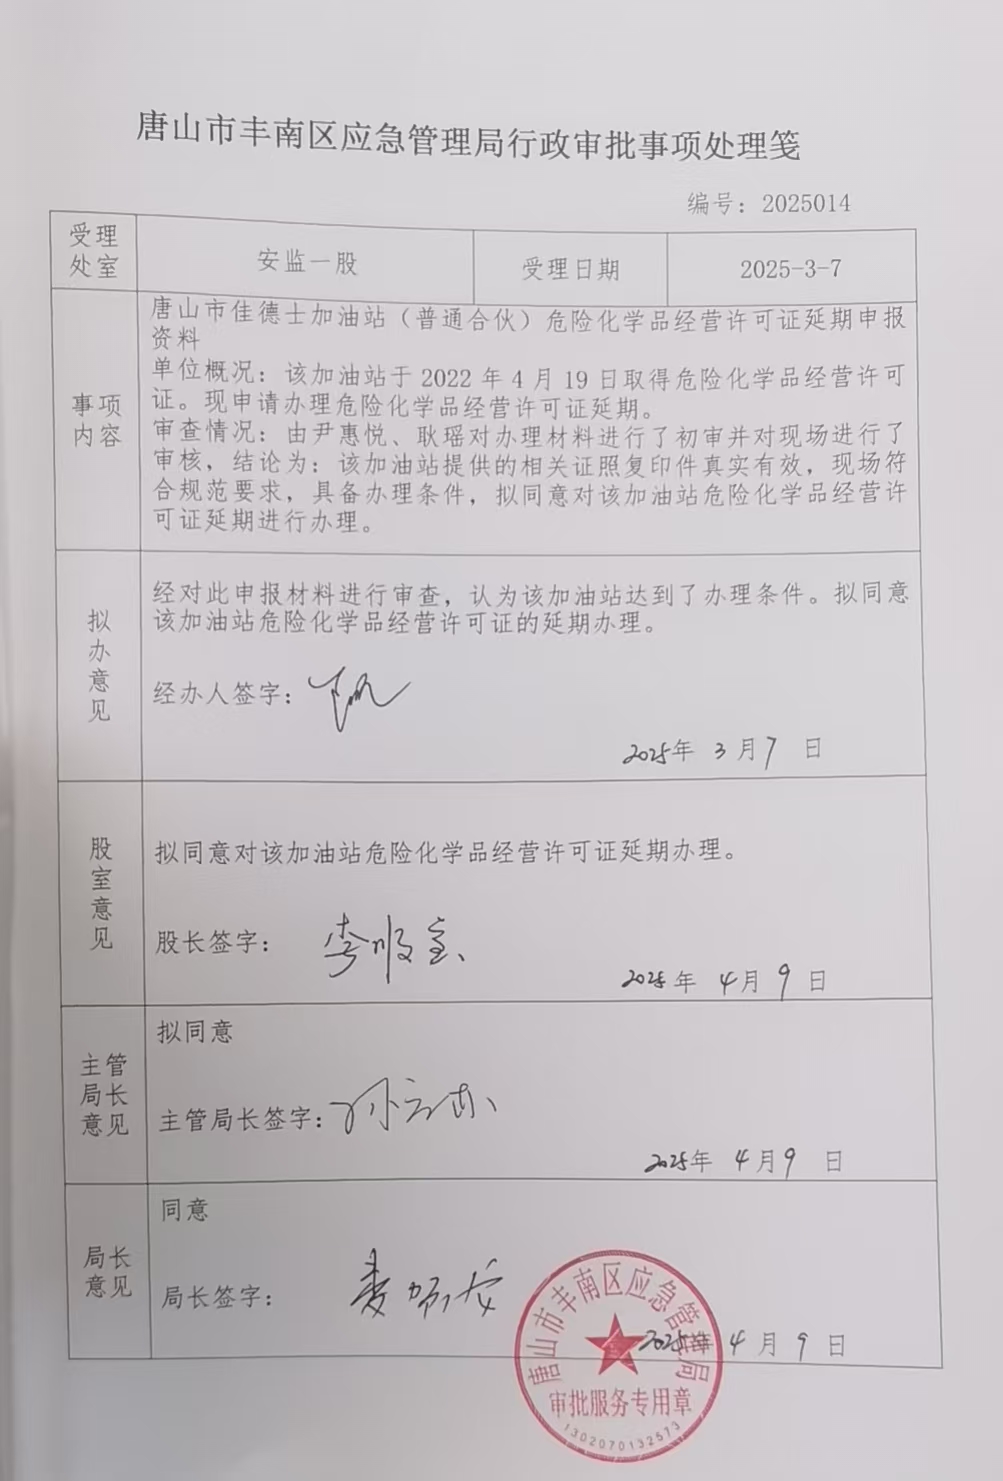 唐山市丰南区应急管理局行政审批事项处理笺
编号：2025014
受理
处室
安监一股
受理日期
2025-3-7
事项
内容
唐山市佳德士加油站（普通合伙）危险化学品经营许可证延期申报
资料
单位概况：该加油站于 2022 年 4 月 19 日取得危险化学品经营许可
证。现申请办理危险化学品经营许可证延期。
审查情况：由尹惠悦、耿瑶对办理材料进行了初审并对现场进行了
审核，结论为：该加油站提供的相关证照复印件真实有效，现场符
合规范要求，具备办理条件，拟同意对该加油站危险化学品经营许
可证延期进行办理。
拟
办
意
见
经对此申报材料进行审查，认为该加油站达到了办理条件。拟同意
该加油站危险化学品经营许可证的延期办理。
经办人签字：
2025年 3 月 7 日
股
室
意
见
拟同意对该加油站危险化学品经营许可证延期办理。
股长签字：
2025年 4月 9 日
主管
局长
意见
拟同意
主管局长签字：
2025年 4月 9 日
局长
意见
同意
局长签字：
2025年 4 月 9 日
唐山市丰南区应急管理局
审批服务专用章
1302070132573